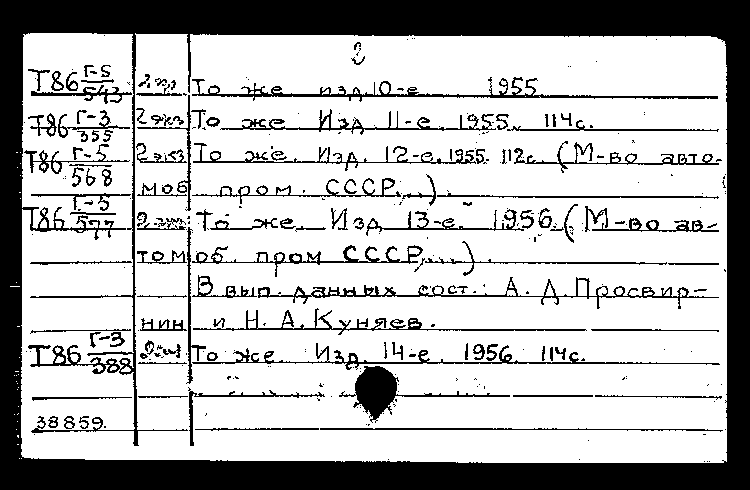 2
Т86 Г-5/543 2 экз То же изд. 10-е 1955
Т86 Г-3/355 2 экз То же Изд. 11-е. 1955. 114с.
Т86 Г-5/568 2 экз То же. Изд. 12-е. 1955. 112с. (М-во авто-
моб пром. СССР...).
Т86 Г-5/577 2 экз То же. Изд 13-е. 1956. (М-во ав-
томоб. пром СССР...).
В вып. данных сост.: А. Д. Просвир-
нин и Н. А. Куняев.
Т86 Г-3/388 То же. Изд. 14-е. 1956. 114с.
38859.